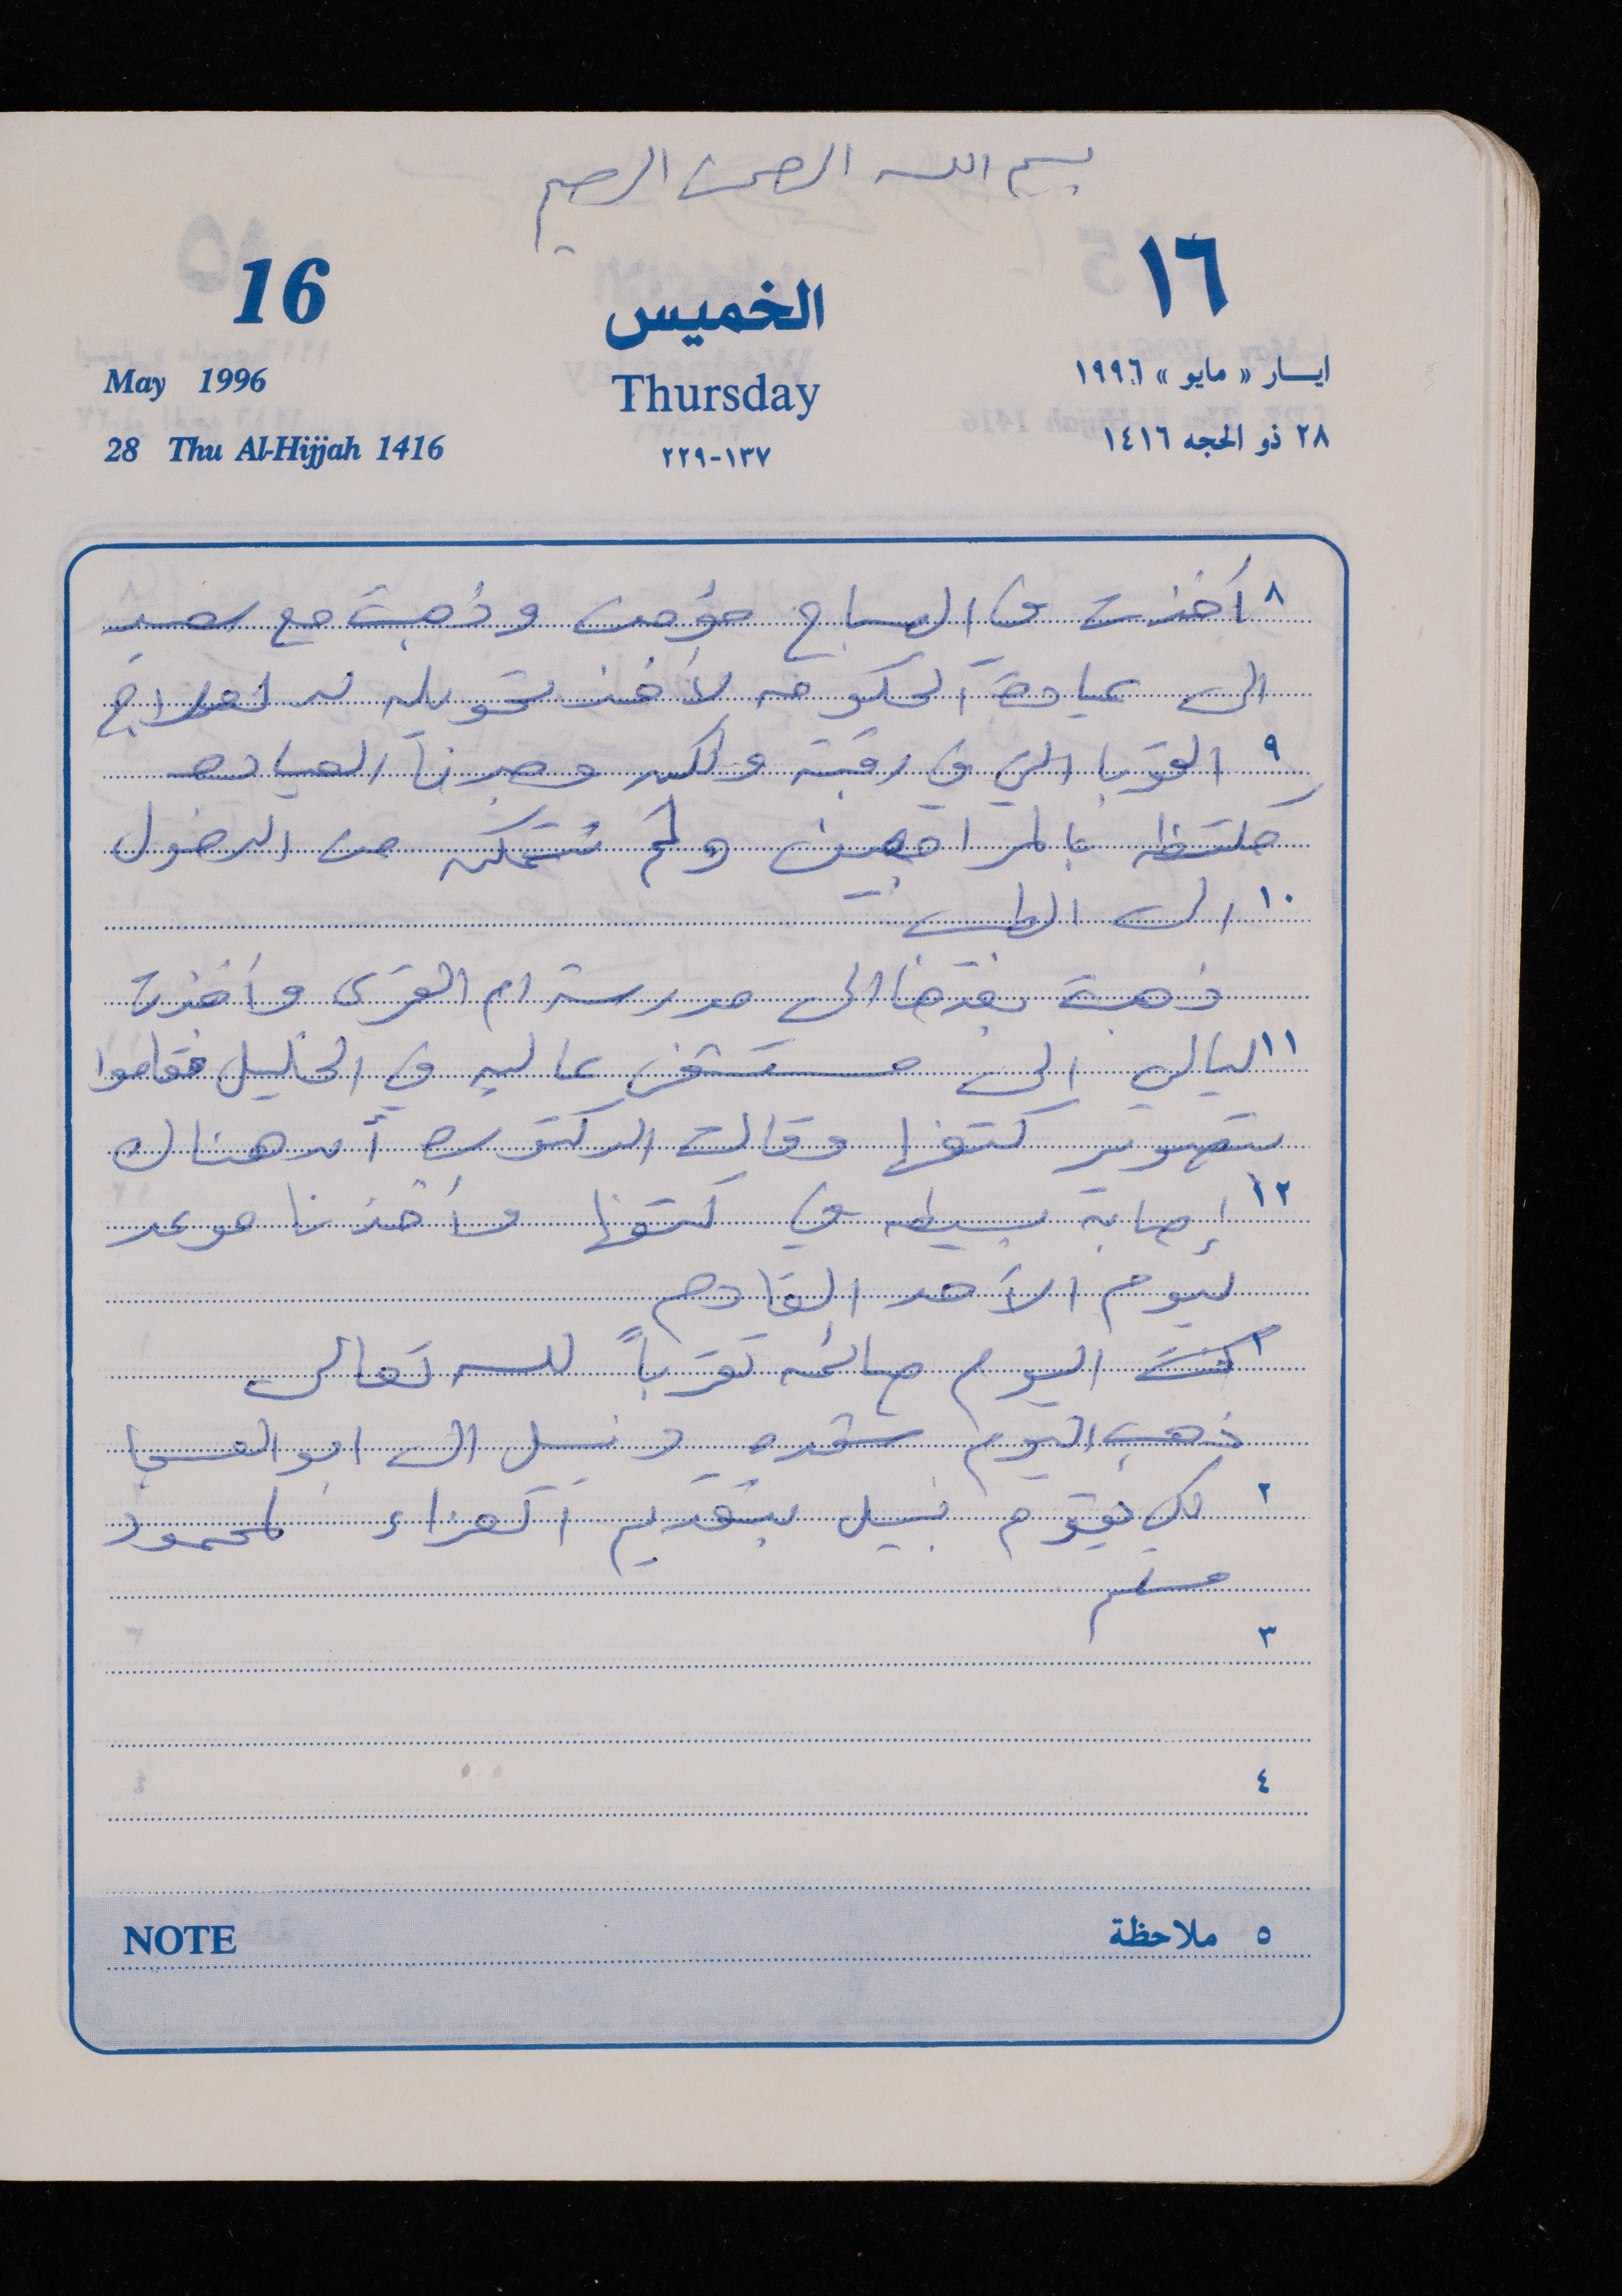 بسم الله الرحمن الرحيم
16
الخميس
١٦
May 1996
Thursday
ايسار « مايو » ١٩٩٦
28 Thu Al-Hijjah 1416
١٣٧-٢٢٩
٢٨ ذو الحجه ١٤١٦
٨ أخذت في الصباح مؤمن وذهبت مع
الى عيادة الحكومه لأخذ تحويله له لعلاج
٩ القوبا التي في رقبته ولكن وجدنا العياده
مكتظه بالمراجعين ولم نتمكن من الدخول
١٠ الى الطبيب
ذهبت بعدها الى مدرسة ام القرى وأخذت
١١ ليالي الى مستشفى عاليه في الخليل فقاموا
بتصوير كتفها وقالت الدكتوره أن هناك
١٢ إصابة بسيطه في كتفها وأخذنا موعد
ليوم الأحد القادم
١ كنت اليوم صائمه تقرباً لله تعالى
ذهب اليوم ونبيل الى ابو العسجا
٢ لكي يقوم نبيل بتقديم العزاء لمحمود
مسلم
٣
٤
NOTE
٥ ملاحظة